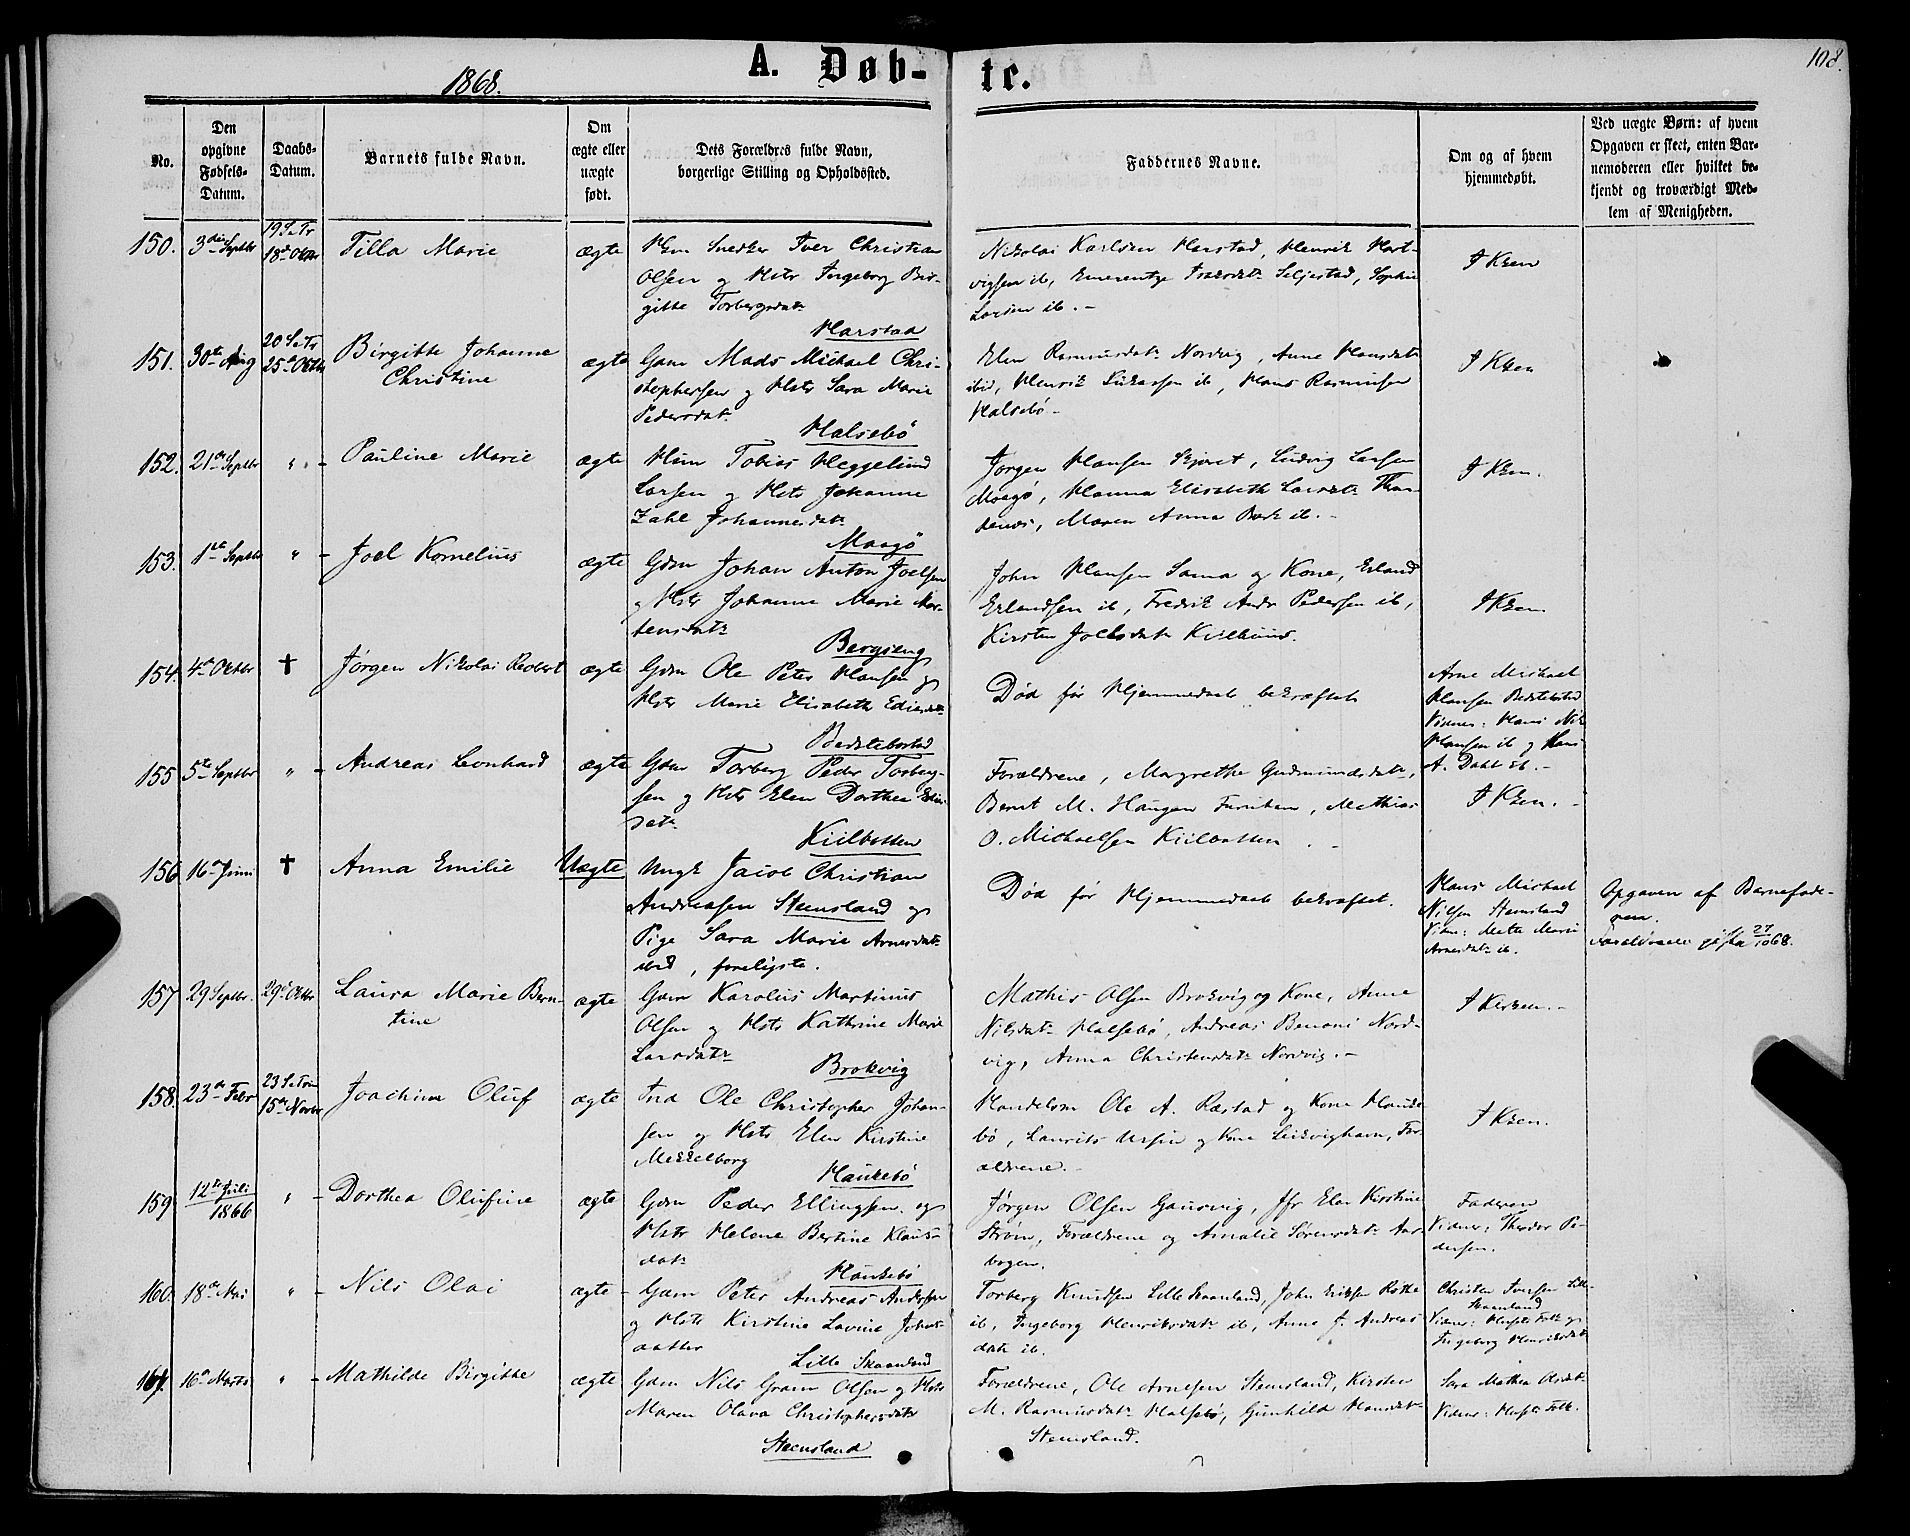 108.
1868.
A. Døb-
te.
No.
Den opgivne Fødsels-Datum.
Daabs-Datum.
Barnets fulde Navn.
Om ægte eller uægte født.
Dets Forældres fulde Navn, borgerlige Stilling og Opholdssted.
Faddernes Navne.
Om og af hvem hjemmedøbt.
Ved uægte Børn: af hvem
Opgaven er skeet, enten Bar-
nemoderen eller hvilket be-
kjendt og troværdigt Med-
lem af Menigheden.
150. 3die Septbr 19 S e Tr 18de Oktbr Tilla Marie ægte
Hsm Snedker Iver Christian
Olsen og Hstr Ingeborg Bir-
gitte Torbergsdatr
Harstad
Nikolai Karlsen Harstad, Henrik Hart-
vigsen ib, Emerentze Isaksdatr Seljestad, Sophie
Larsen ib. -
I Kken
151. 30te Aug 20 S e Tr 25de Oktbr Birgitte Johanne
Christine
ægte
Gdm Mads Michael Chri-
stophersen og Hstr Sara Marie
Pedersdatr
Halsebø
Elen Rasmusdatr Nordvig, Anne Hansdatr
ibid, Henrik Lukassen ib, Hans Rasmussen
Halsebø -
I Kken
152. 21de Septbr " - Pauline Marie ægte
Hsm Tobias Heggelund
Larsen og Hstr Johanne
Zahl Johannesdatr
Maagø
Jørgen Hansen, Ludvig Larsen
Maagø, Hanna Elisabeth Larsdatr Thron-
denæs, Maren Anna Beck ib. -
I Kken.
153. 1ste Septbr " - Joel Kornelius ægte
Gdm Johan Anton Joelsen
og Hstr Johanne Marie Mor-
tensdatr
Bergseng
John Hansen Sama og Kone, Erland
Erlandsen ib, Fredrik Andr Pedersen ib,
Kirsten Joelsdatr Kiilbund.
I Kken
154. 4de Oktbr † Jørgen Nikolai Robert ægte
Gdm Ole Peter Hansen og
Hstr Marie Elisabeth Ediasdatr
Bedstebostad
Død før Hjemmedaab bekræftet
Arne Michael
Hansen Bedstebostad
Vidner: Hans Nik
Hansen ib og Hans
A. Dahl ib. -
155 5te Septbr " - Andreas Leonhard ægte
Gdm Torberg Peder Torberg-
sen og Hstr Elen Dorthea Edias
datr
Kiilbotten
Forældrene, Margrethe Gudmundsdatr,
Bernt M. Haugen, Mathias
O. Michaelsen Kiilbotten. -
I Kken. -
156 16de Juni † Anna Emilie Uægte
Ungk Jacob Christian
Andreasen Steensland og
Pige Sara Marie Arnesdatr
ibid, foreligste.
Død før Hjemmedaab bekræftet.
Hans Michael
Nilsen Stensland
Vidne: Mette Marie
Arnesdatr ib.
Opgaven af Barnefade-
ren.
Forældrene gifta 27/10 68.
157 29 Septbr. 29de Oktbr Laura Marie Bern-
tine
ægte
Gdm Karolus Martinus
Olsen og Hstr Kathrine Marie
Larsdatr
Brokvig
Mathis Olsen Brokvig og Kone, Anne
Nilsdatr Halsebø, Andreas Benoni Nord-
vig, Anna Christensdatr Nordvig. -
I Kirken. -
158. 23de Febr 23 S e Trin 15de Novbr Joachim Oluf ægte
Ind Ole Christopher Johan-
sen og Hstr Elen Kirstine
Mekkelborg
Haukebø
Handelsm Ole A. Røstad og Kone Hauke-
bø, Laurits Ursin og Kone Leikvigham, For-
ældrene. -
I Kken.
159 12te Juli 1866 " - Dorthea Olufine ægte
Gdm Peder Ellingsen og
Hstr Helene Bertine Klaus-
datr
Haukebø
Jørgen Olsen Gausvig, Jfr Elen Kirstine
Strøm, Forældrene og Amalie Sørensdatr Aar-
bogen.
Faderen
Vidner: Theodor Pe-
dersen.
160. 18de Mai " - Nils Olai ægte -
Gdm Peter Andreas Andersen
og Hstr Kirstine Lovise Johns
datter
Lille Skaanland
Torberg Knudsen Lille Skaanland, John Eriksen Rothe
ib, Ingeborg Henriksdatr ib, Anne J. Andreas
datr ib.
Christen Jonsen Lille-
Skaanland
Vidner: Husets Folk og
Ingeborg Henriksdatr
161. 16de Marts " - Mathilde Birgitte ægte
Gdm Nils Gram Olsen og Hstr
Maren Olava Christophersdatr
Steensland
Forældrene, Ole Arnesen Stensland, Kirsten
M. Rasmusdatr Halsebø, Gunhild Hansdatr
Stensland.
Sara Mathea Olsdatr
Vidner: Husets Folk.